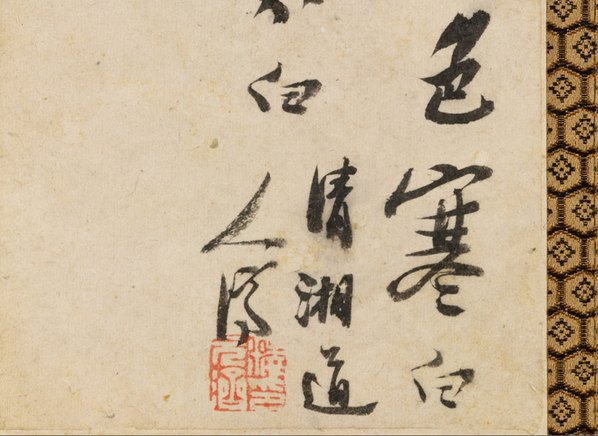 色寒白
白
清湘道
人濟